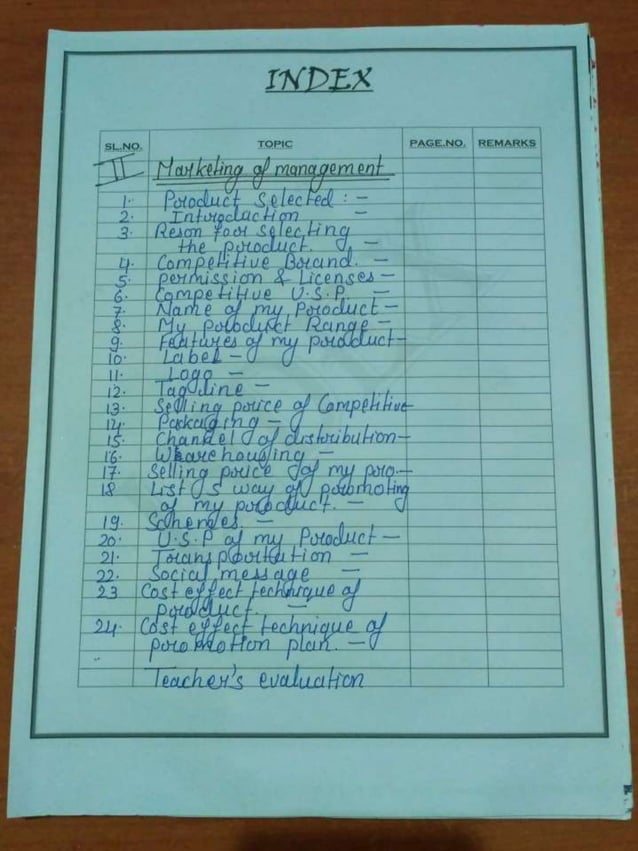 INDEX
SL.NO. TOPIC PAGE.NO. REMARKS
II Marketing of management
1. Product Selected :-
2. Introduction -
3. Reson for Selecting
the product. -
4. Competitive Brand. -
5. permission & Licenses -
6. Competitive U.S.P. -
7. Name of my Product -
8. My Product Range -
9. Features of my product -
10. Label -
11. Logo -
12. Tag Line -
13. Selling price of Competitive
14. Packaging -
15. Channel of distribution -
16. Warehousing -
17. Selling price of my pro. -
18 List 5 way of promoting
of my product. -
19. Schemes. -
20. U.S.P of my Product -
21. Transportation -
22. Social message -
23 Cost effect technique of
product. -
24. Cost effect technique of
promotion plan. -
Teacher's evaluation